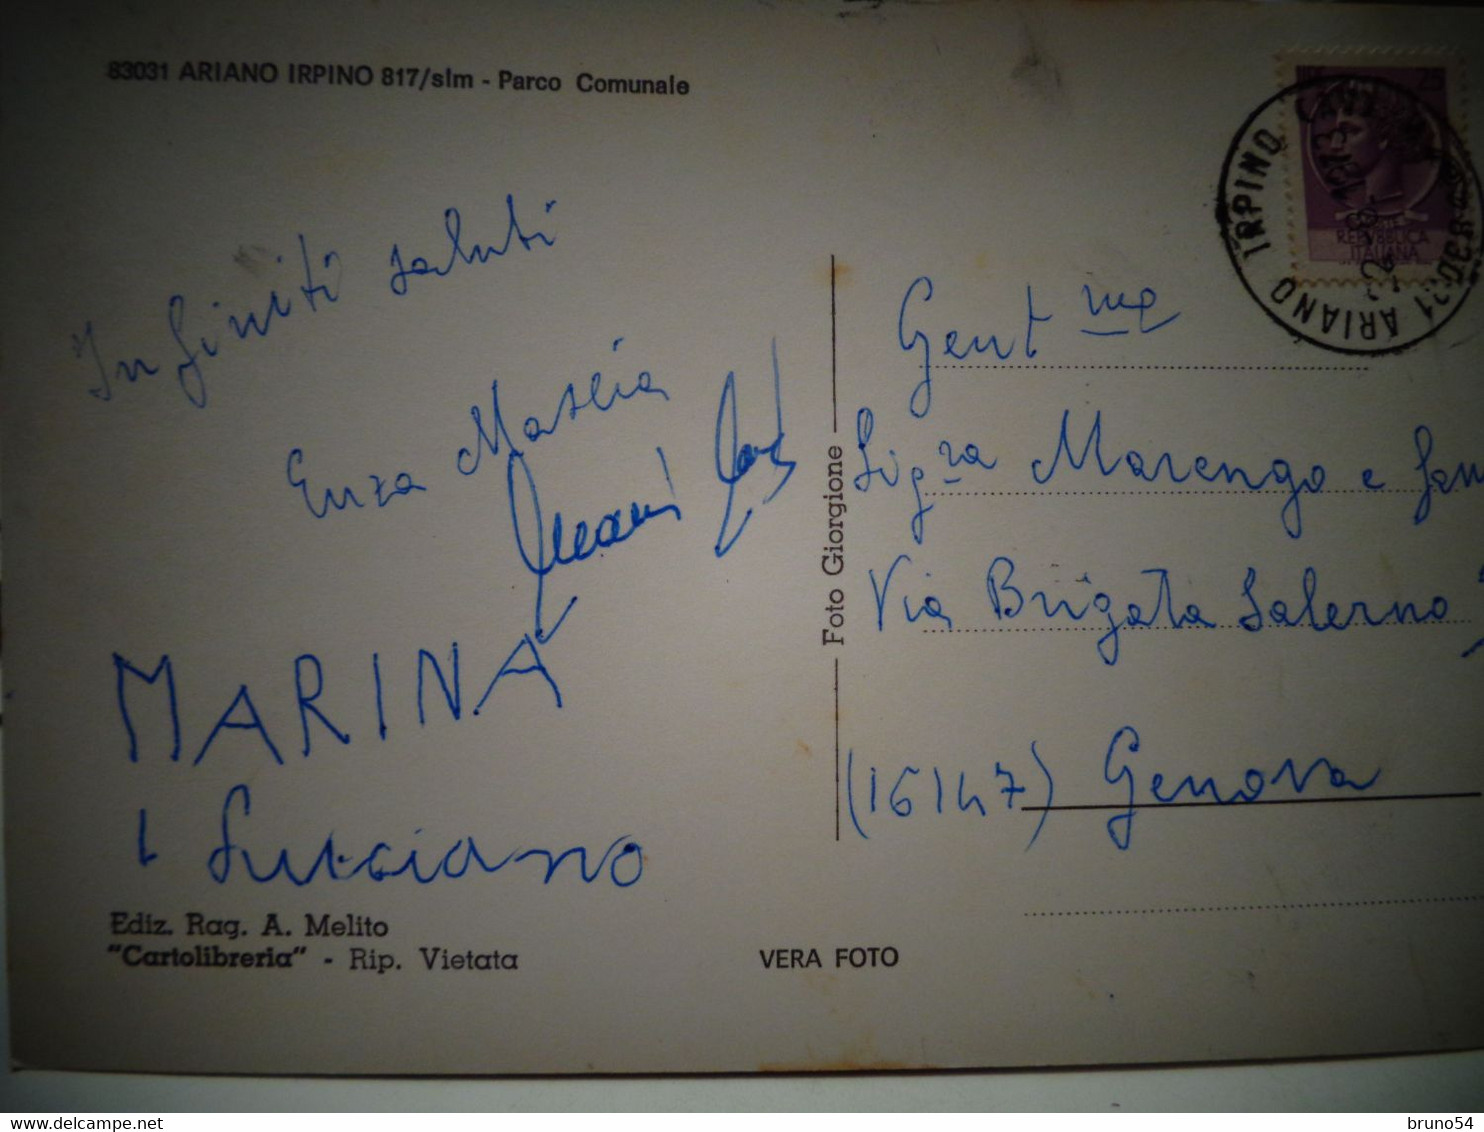 83031 ARIANO IRPINO 817/slm - Parco Comunale
Infiniti saluti
Enza Maslia
MARINA
Luciano
Ediz. Rag. A. Melito
"Cartolibreria" - Rip. Vietata
VERA FOTO
Foto Giorgione
25
REPVBBLICA
ITALIANA
ARIANO IRPINO
Gent.me
Sig.ra Marengo e fam
Via Brigata Salerno
(16147) Genova
bruno54